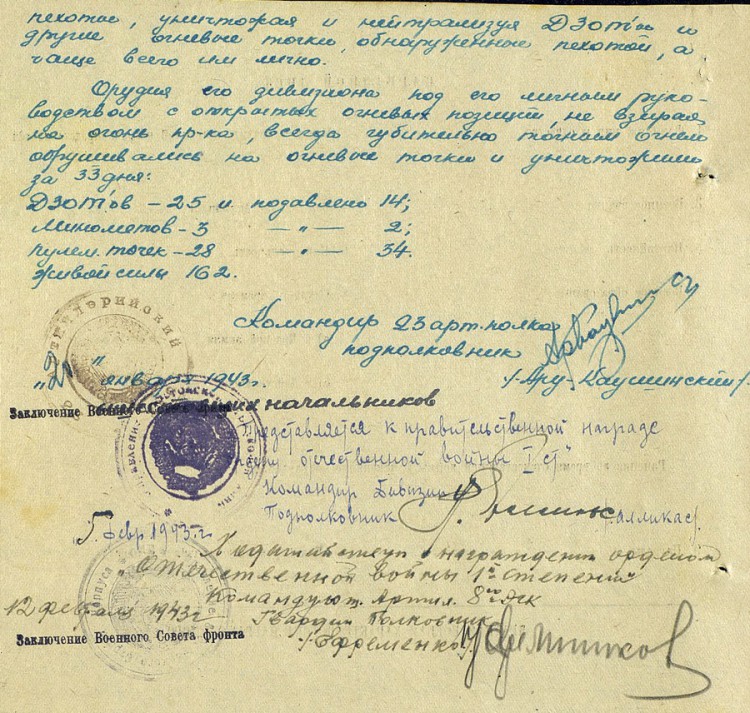 пехотою, уничтожая и нейтрализуя ДЗОТ'ы и
другие огневые точки, обнаруженные пехотой, а
чаще всего им лично.
Орудия его дивизиона под его личным руко-
водством с открытых огневых позиций, не взирая
на огонь пр-ка, всегда губительно точным огнем
обрушивались на огневые точки и уничтожили
за 33 дня:
ДЗОТ'ов - 25 и подавлено 14;
Минометов - 3 — " — 2;
пулем. точек - 28 — " — 34.
Живой силы 162.
Командир 23 арт. полка
подполковник
января 1943 г.
Заключение начальников
представляется к правительственной награде
отечественной войны I ст"
Командир Дивизии
Подполковник
февр 1943 г
Ходатайствую о награждении орденом
"Отечественной войны 1й степени"
Командующ. Артил. 8го Эск
12 февраля 1943 г
Гвардии Полковник
Заключение Военного Совета фронта
/Ефременко/